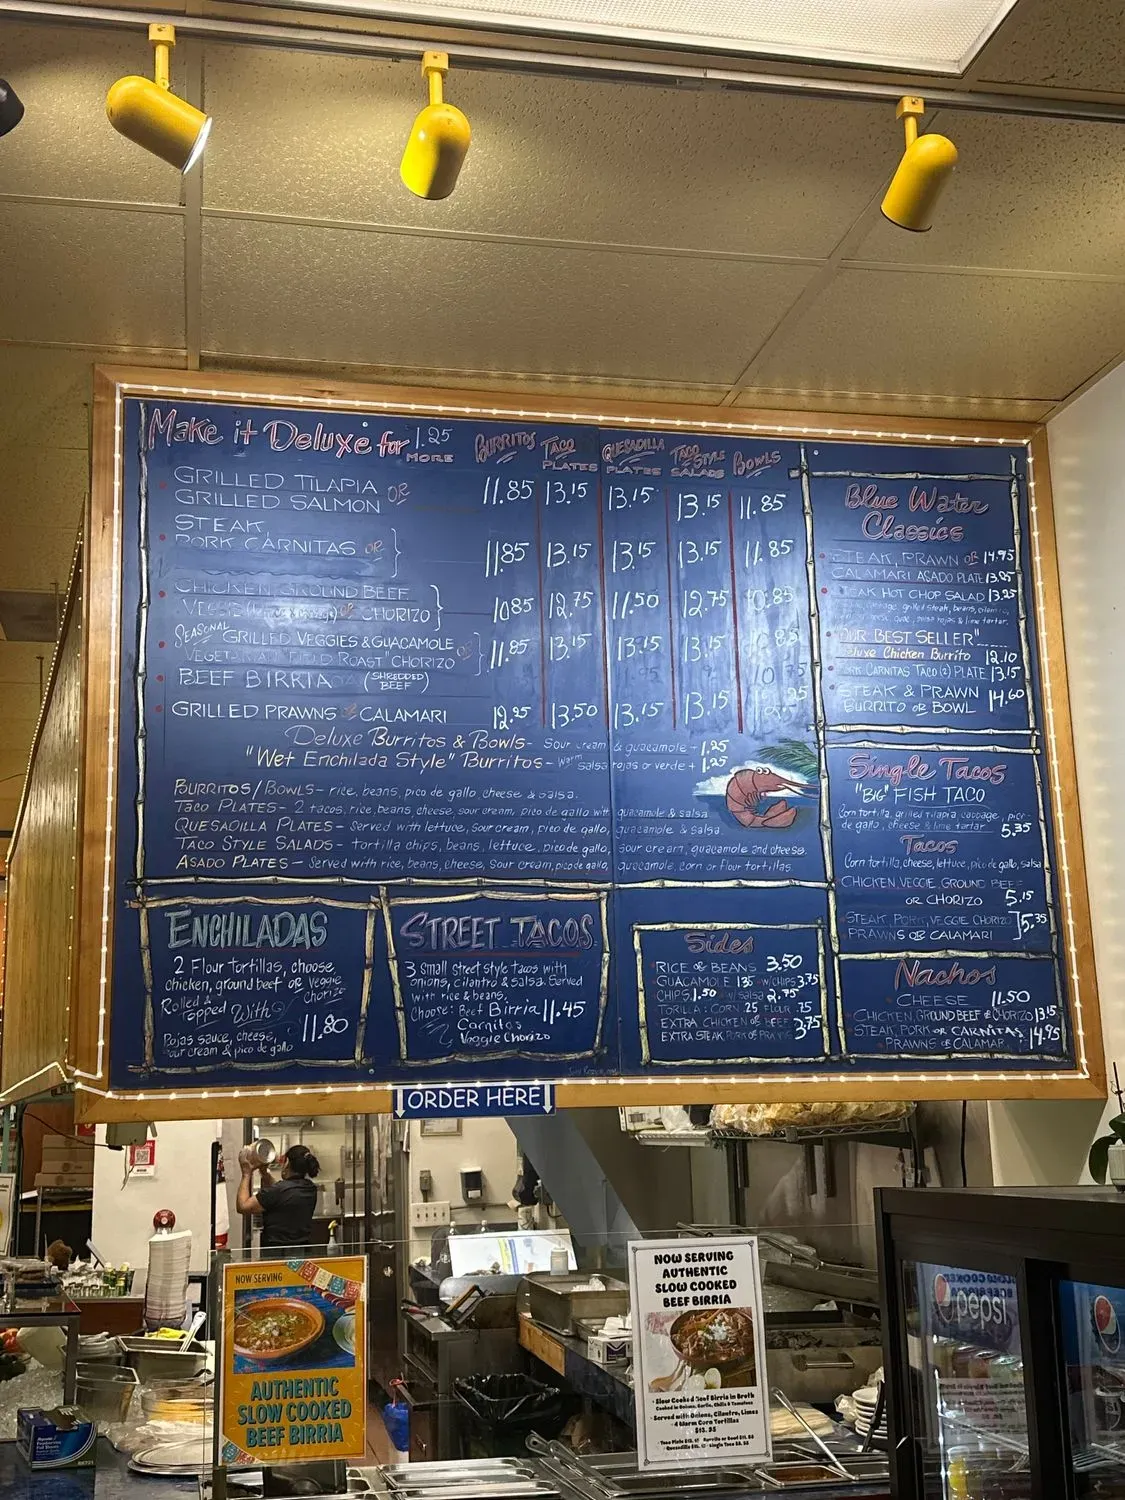 Make it Deluxe for 1.25 MORE
BURRITOS TACO PLATES QUESADILLA PLATES TACO STYLE SALADS BOWLS
GRILLED TILAPIA OR
GRILLED SALMON
11.85 13.15 13.15 13.15 11.85
STEAK,
PORK CARNITAS OR
11.85 13.15 13.15 13.15 11.85
CHICKEN, GROUND BEEF
VEGGIE OR CHORIZO
10.85 12.75 11.50 12.75 10.85
SEASONAL GRILLED VEGGIES & GUACAMOLE OR
VEGETARIAN "FIELD ROAST" CHORIZO
11.85 13.15 13.15 13.15
BEEF BIRRIA (SHREDDED BEEF)
GRILLED PRAWNS CALAMARI
12.95 13.50 13.15 13.15
Deluxe Burritos & Bowls- Sour cream & guacamole + 1.25
"Wet Enchilada Style" Burritos- Warm salsa rojas or verde + 1.25
BURRITOS/BOWLS- rice, beans, pico de gallo, cheese & salsa.
TACO PLATES- 2 tacos, rice, beans, cheese, sour cream, pico de gallo with guacamole & salsa
QUESADILLA PLATES- Served with lettuce, sour cream, pico de gallo, guacamole & salsa
TACO STYLE SALADS- tortilla chips, beans, lettuce, pico de gallo, sour cream, guacamole and cheese.
ASADO PLATES- Served with rice, beans, cheese, sour cream, pico de gallo, guacamole, corn or flour tortillas.
Blue Water
Classics
STEAK, PRAWN OR 14.95
CALAMARI ASADO PLATE 13.95
STEAK HOT CHOP SALAD 13.25
OUR BEST SELLER"
Deluxe Chicken Burrito 12.10
PORK CARNITAS TACO (2) PLATE 13.15
STEAK & PRAWN
BURRITO OR BOWL 14.60
Single Tacos
"BIG" FISH TACO
Corn tortilla, grilled tilapia cabbage, pico
de gallo, cheese & lime tartar 5.35
Tacos
Corn tortilla, cheese, lettuce, pico de gallo, salsa
CHICKEN, VEGGIE, GROUND BEEF
OR CHORIZO 5.15
STEAK, PORK, VEGGIE CHORIZO
PRAWNS OR CALAMARI 5.35
Nachos
CHEESE 11.50
CHICKEN, GROUND BEEF OR CHORIZO 13.15
STEAK, PORK OR CARNITAS
PRAWNS OR CALAMARI 14.95
ENCHILADAS
2 Flour tortillas, choose
chicken, ground beef or veggie
chorizo
Rolled &
Topped With
Rojas sauce, cheese,
sour cream & pico de gallo
11.80
STREET TACOS
3 Small street style tacos with
onions, cilantro & salsa. Served
with rice & beans.
Choose: Beef Birria 11.45
Carnitas
Veggie Chorizo
Sides
RICE OR BEANS 3.50
GUACAMOLE 1.35 W/CHIPS 3.75
CHIPS 1.50 W/ Salsa 2.75
TORILLA: CORN .25 FLOUR .75
EXTRA CHICKEN OR BEEF
EXTRA STEAK PORK OR PRAWNS 3.75
ORDER HERE
NOW SERVING
AUTHENTIC
SLOW COOKED
BEEF BIRRIA
NOW SERVING
AUTHENTIC
SLOW COOKED
BEEF BIRRIA
Slow Cooked Beef Birria in Broth
Cooked in Onions, Garlic, Chilis & Tomatoes
Served with Onions, Cilantro, Limes
4 Warm Corn Tortillas
$13.95
pepsi